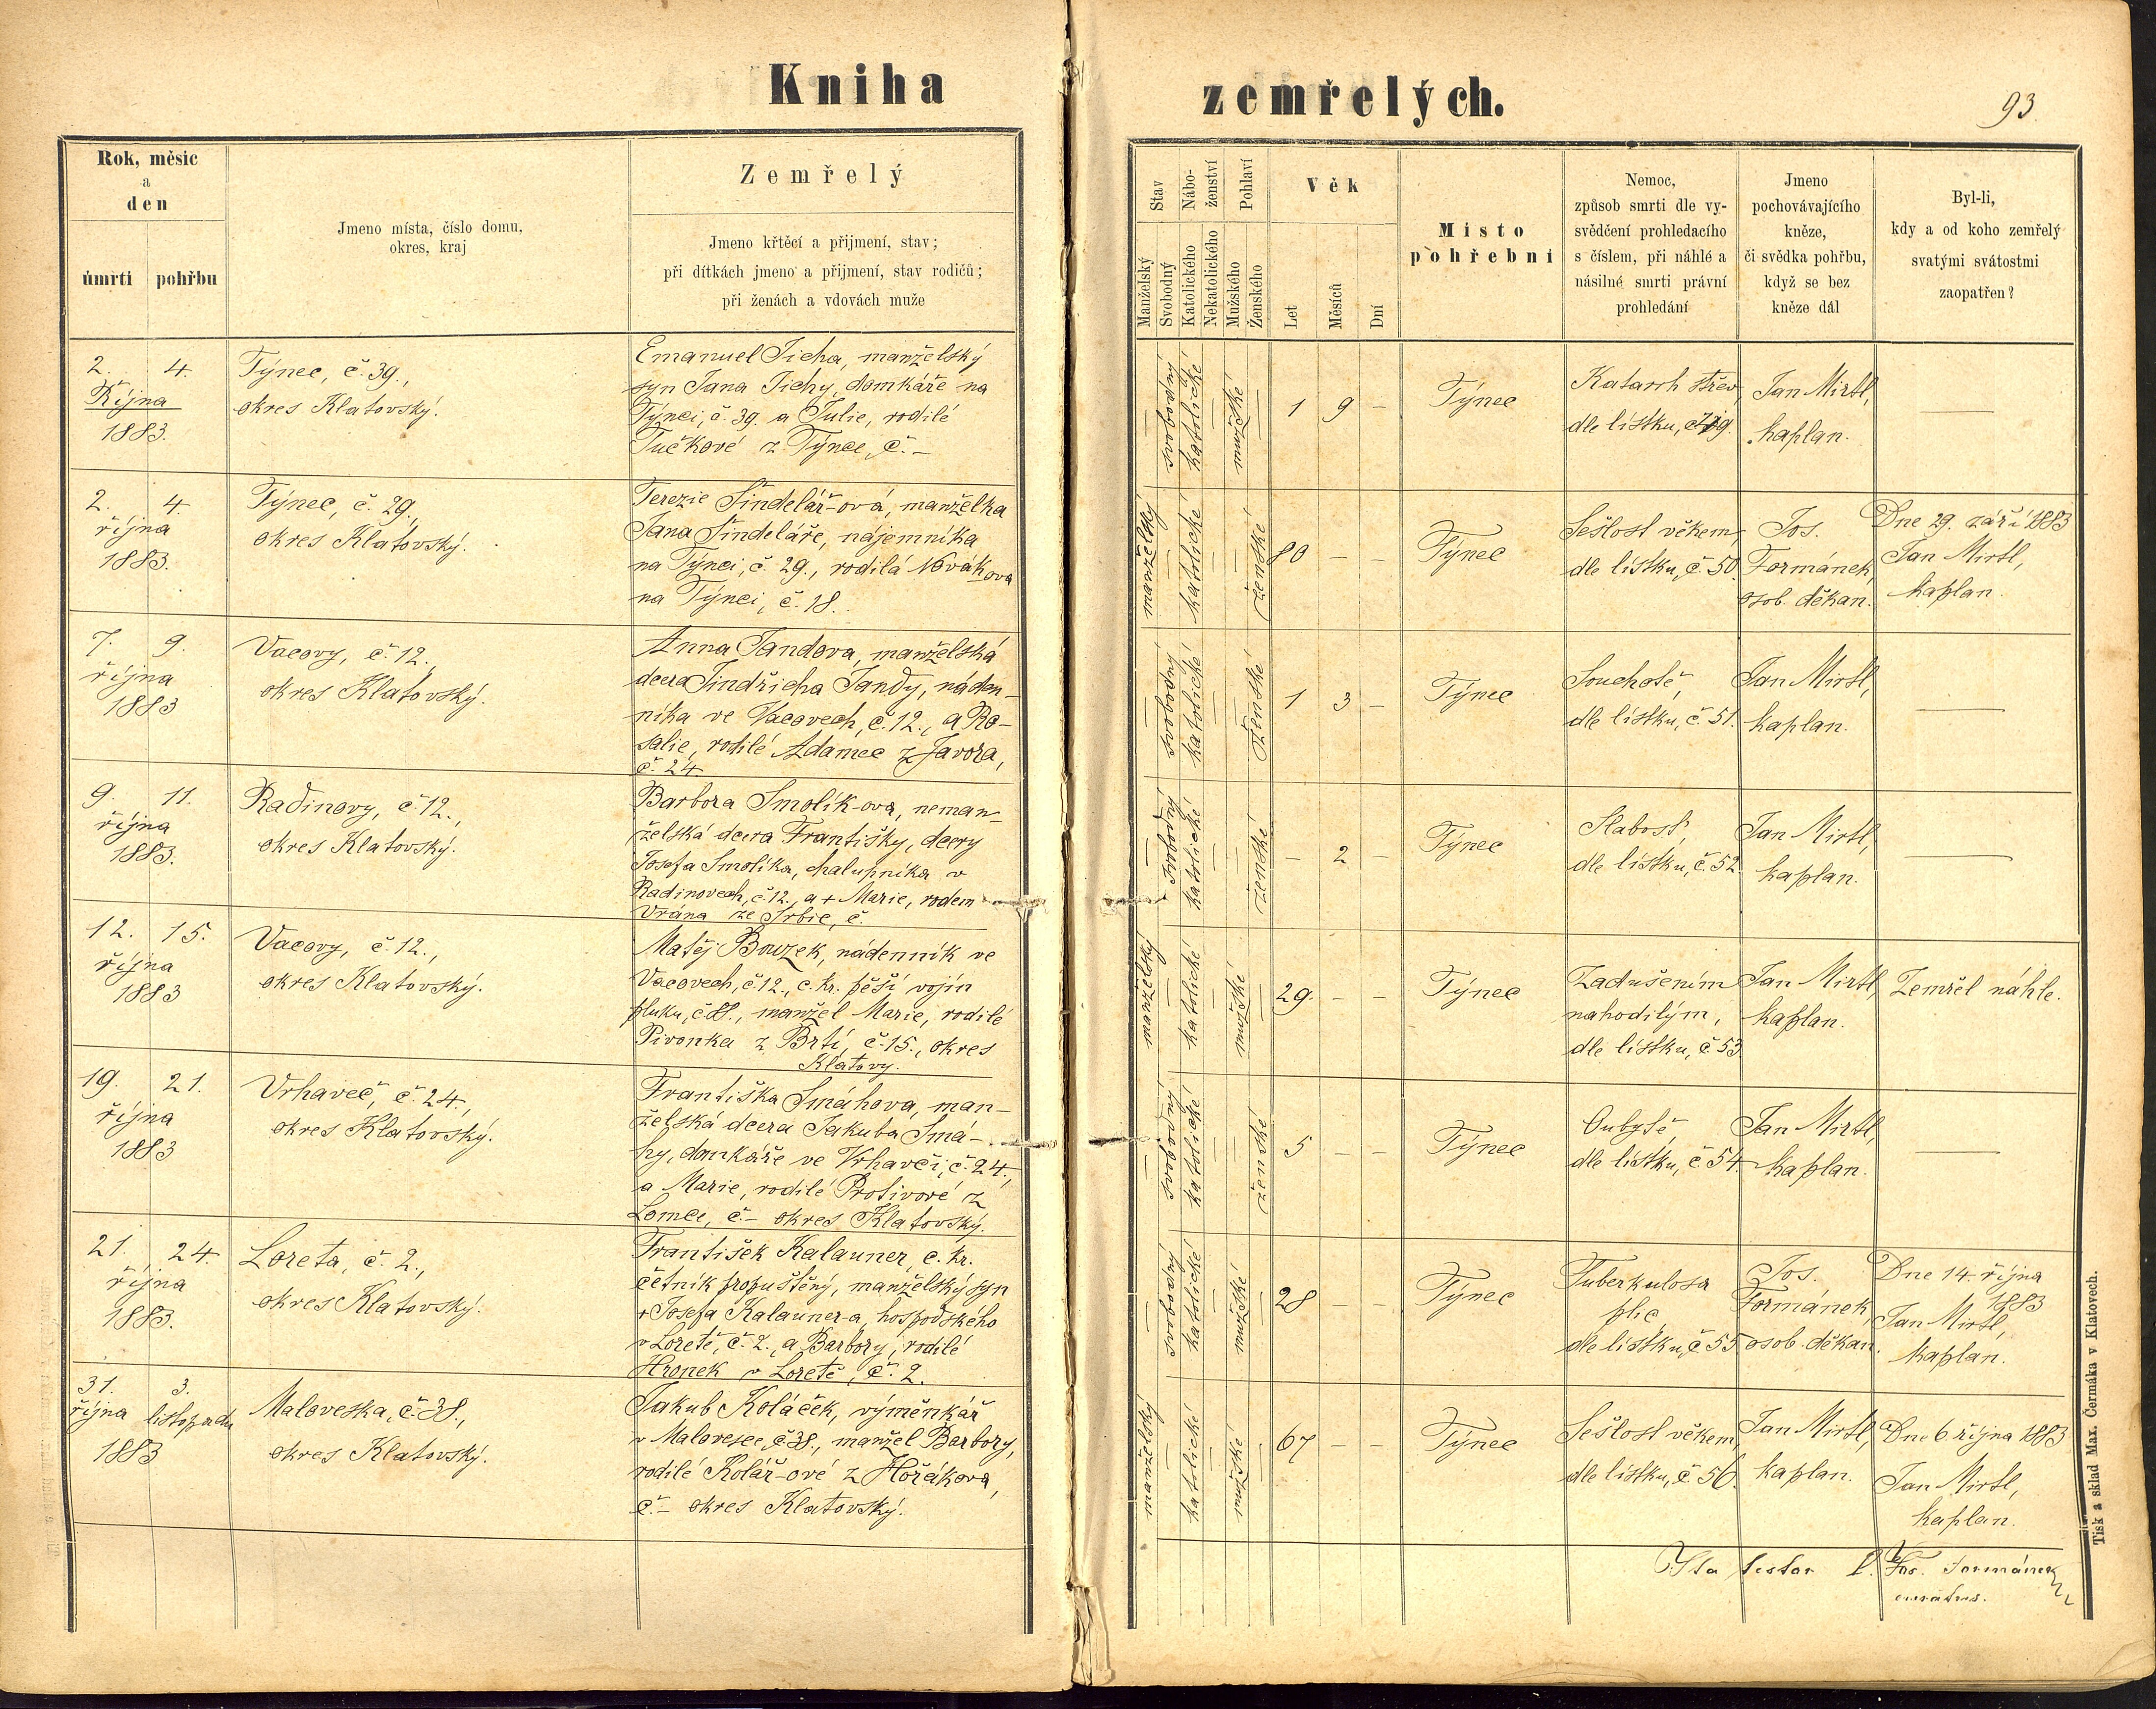 Kniha zemřelých.
93
Rok, měsíc
a
den
úmrtí
pohřbu
Jmeno místa, číslo domu,
okres, kraj
Zemřelý
Jmeno křtěcí a přijmení, stav;
při dítkách jmeno a přijmení, stav rodičů;
při ženách a vdovách muže
Stav
Manželský
Svobodný
Nábo-
ženství
Katolického
Nekatolického
Pohlaví
Mužského
Ženského
Věk
Let
Měsíců
Dní
Místo
pohřební
Nemoc,
způsob smrti dle vy-
svědčení prohledacího
s číslem, při náhlé a
násilné smrti právní
prohledání
Jmeno
pochovávajícího
kněze,
či svědka pohřbu,
když se bez
kněze dál
Byl-li,
kdy a od koho zemřelý
svatými svátostmi
zaopatřen?
2. 4.
Října
1883.
Týnec, č. 39.,
okres Klatovský.
Emanuel Ticha, manželský
syn Jana Tichy, domkáře na
Týnci, č. 39. a Julie, rodilé
Tučkové z Týnce, č. –
— svobodný katolické — mužské —
1 9 –
Týnec
Katarrh střev,
dle lístku, č. 49.
Jan Mirtl,
kaplan.
—
2. 4.
října
1883.
Týnec, č. 29.,
okres Klatovský.
Terezie Šindelář-ová, manželka
Jana Šindeláře, nájemníka
na Týnci, č. 29., rodilá Novákova
na Týnci, č. 18.
manželský — katolické — — ženské
80 – –
Týnec
Sešlost věkem,
dle lístku, č. 50.
Jos.
Formánek,
osob. děkan.
Dne 29. září 1883
Jan Mirtl,
kaplan.
7. 9.
října
1883
Vacovy, č. 12.,
okres Klatovský.
Anna Jandova, manželská
dcera Jindřicha Jandy, náden-
níka ve Vacovech, č. 12., a Ro-
salie, rodilé Adamec z Javora,
č. 24
— svobodný katolické — — ženské
1 3 –
Týnec
Souchotě,
dle lístku, č. 51.
Jan Mirtl,
kaplan.
—
9. 11.
října
1883.
Radinovy, č. 12.,
okres Klatovský.
Barbora Smolík-ova, neman-
želská dcera Františky, dcery
Josefa Smolíka, chalupníka v
Radinovech, č. 12., a + Marie, rodem
Vrána ze Srbic, č.
— svobodný katolické — — ženské
– 2 –
Týnec
Slabost,
dle lístku, č. 52.
Jan Mirtl,
kaplan.
—
12. 15.
října
1883
Vacovy, č. 12.,
okres Klatovský.
Matěj Bouzek, nádenník ve
Vacovech, č. 12., c. kr. pěší vojín
pluku, č. , manžel Marie, rodilé
Pivonka z Brtí, č. 15., okres
Klatovy.
manželský — katolické — mužské —
29. – –
Týnec
Zadušením
nahodilým,
dle lístku, č. 53.
Jan Mirtl,
kaplan.
Zemřel náhle.
19. 21.
října
1883
Vrhaveč, č. 24.,
okres Klatovský.
Františka Smáhova, man-
želská dcera Jakuba Smá-
hy, domkáře ve Vrhavči, č. 24.,
a Marie, rodilé Protivové z
Lomce, č. – okres Klatovský.
— svobodný katolické — — ženské
5 – –
Týnec
Oubytě
dle lístku, č. 54.
Jan Mirtl,
kaplan.
—
21. 24.
října
1883.
Loreta, č. 2.,
okres Klatovský.
František Kalauner, c. kr.
četník propuštěný, manželský syn
+ Josefa Kalauner-a, hospodského
v Loretě, č. 2., a Barbory, rodilé
Hronek v Loretě, č. 2.
— svobodný katolické — mužské —
28 – –
Týnec
Tuberkulosa
plic,
dle lístku, č. 55.
Jos.
Formánek,
osob. děkan.
Dne 14. října
1883
Jan Mirtl,
kaplan.
31. 3.
října listopadu
1883
Maloveska, č. 38.,
okres Klatovský.
Jakub Koláček, výměnkář
v Malovesce, č. 38., manžel Barbory,
rodilé Kolář-ové z Hořákova,
č. – okres Klatovský.
manželský — katolické — mužské —
67 – –
Týnec
Sešlost věkem,
dle lístku, č. 56.
Jan Mirtl,
kaplan.
Dne 6 října 1883
Jan Mirtl,
kaplan.
Ita testor P. Jos. Formánek
curatus.
Tisk a sklad Max. Čermáka v Klatovech.